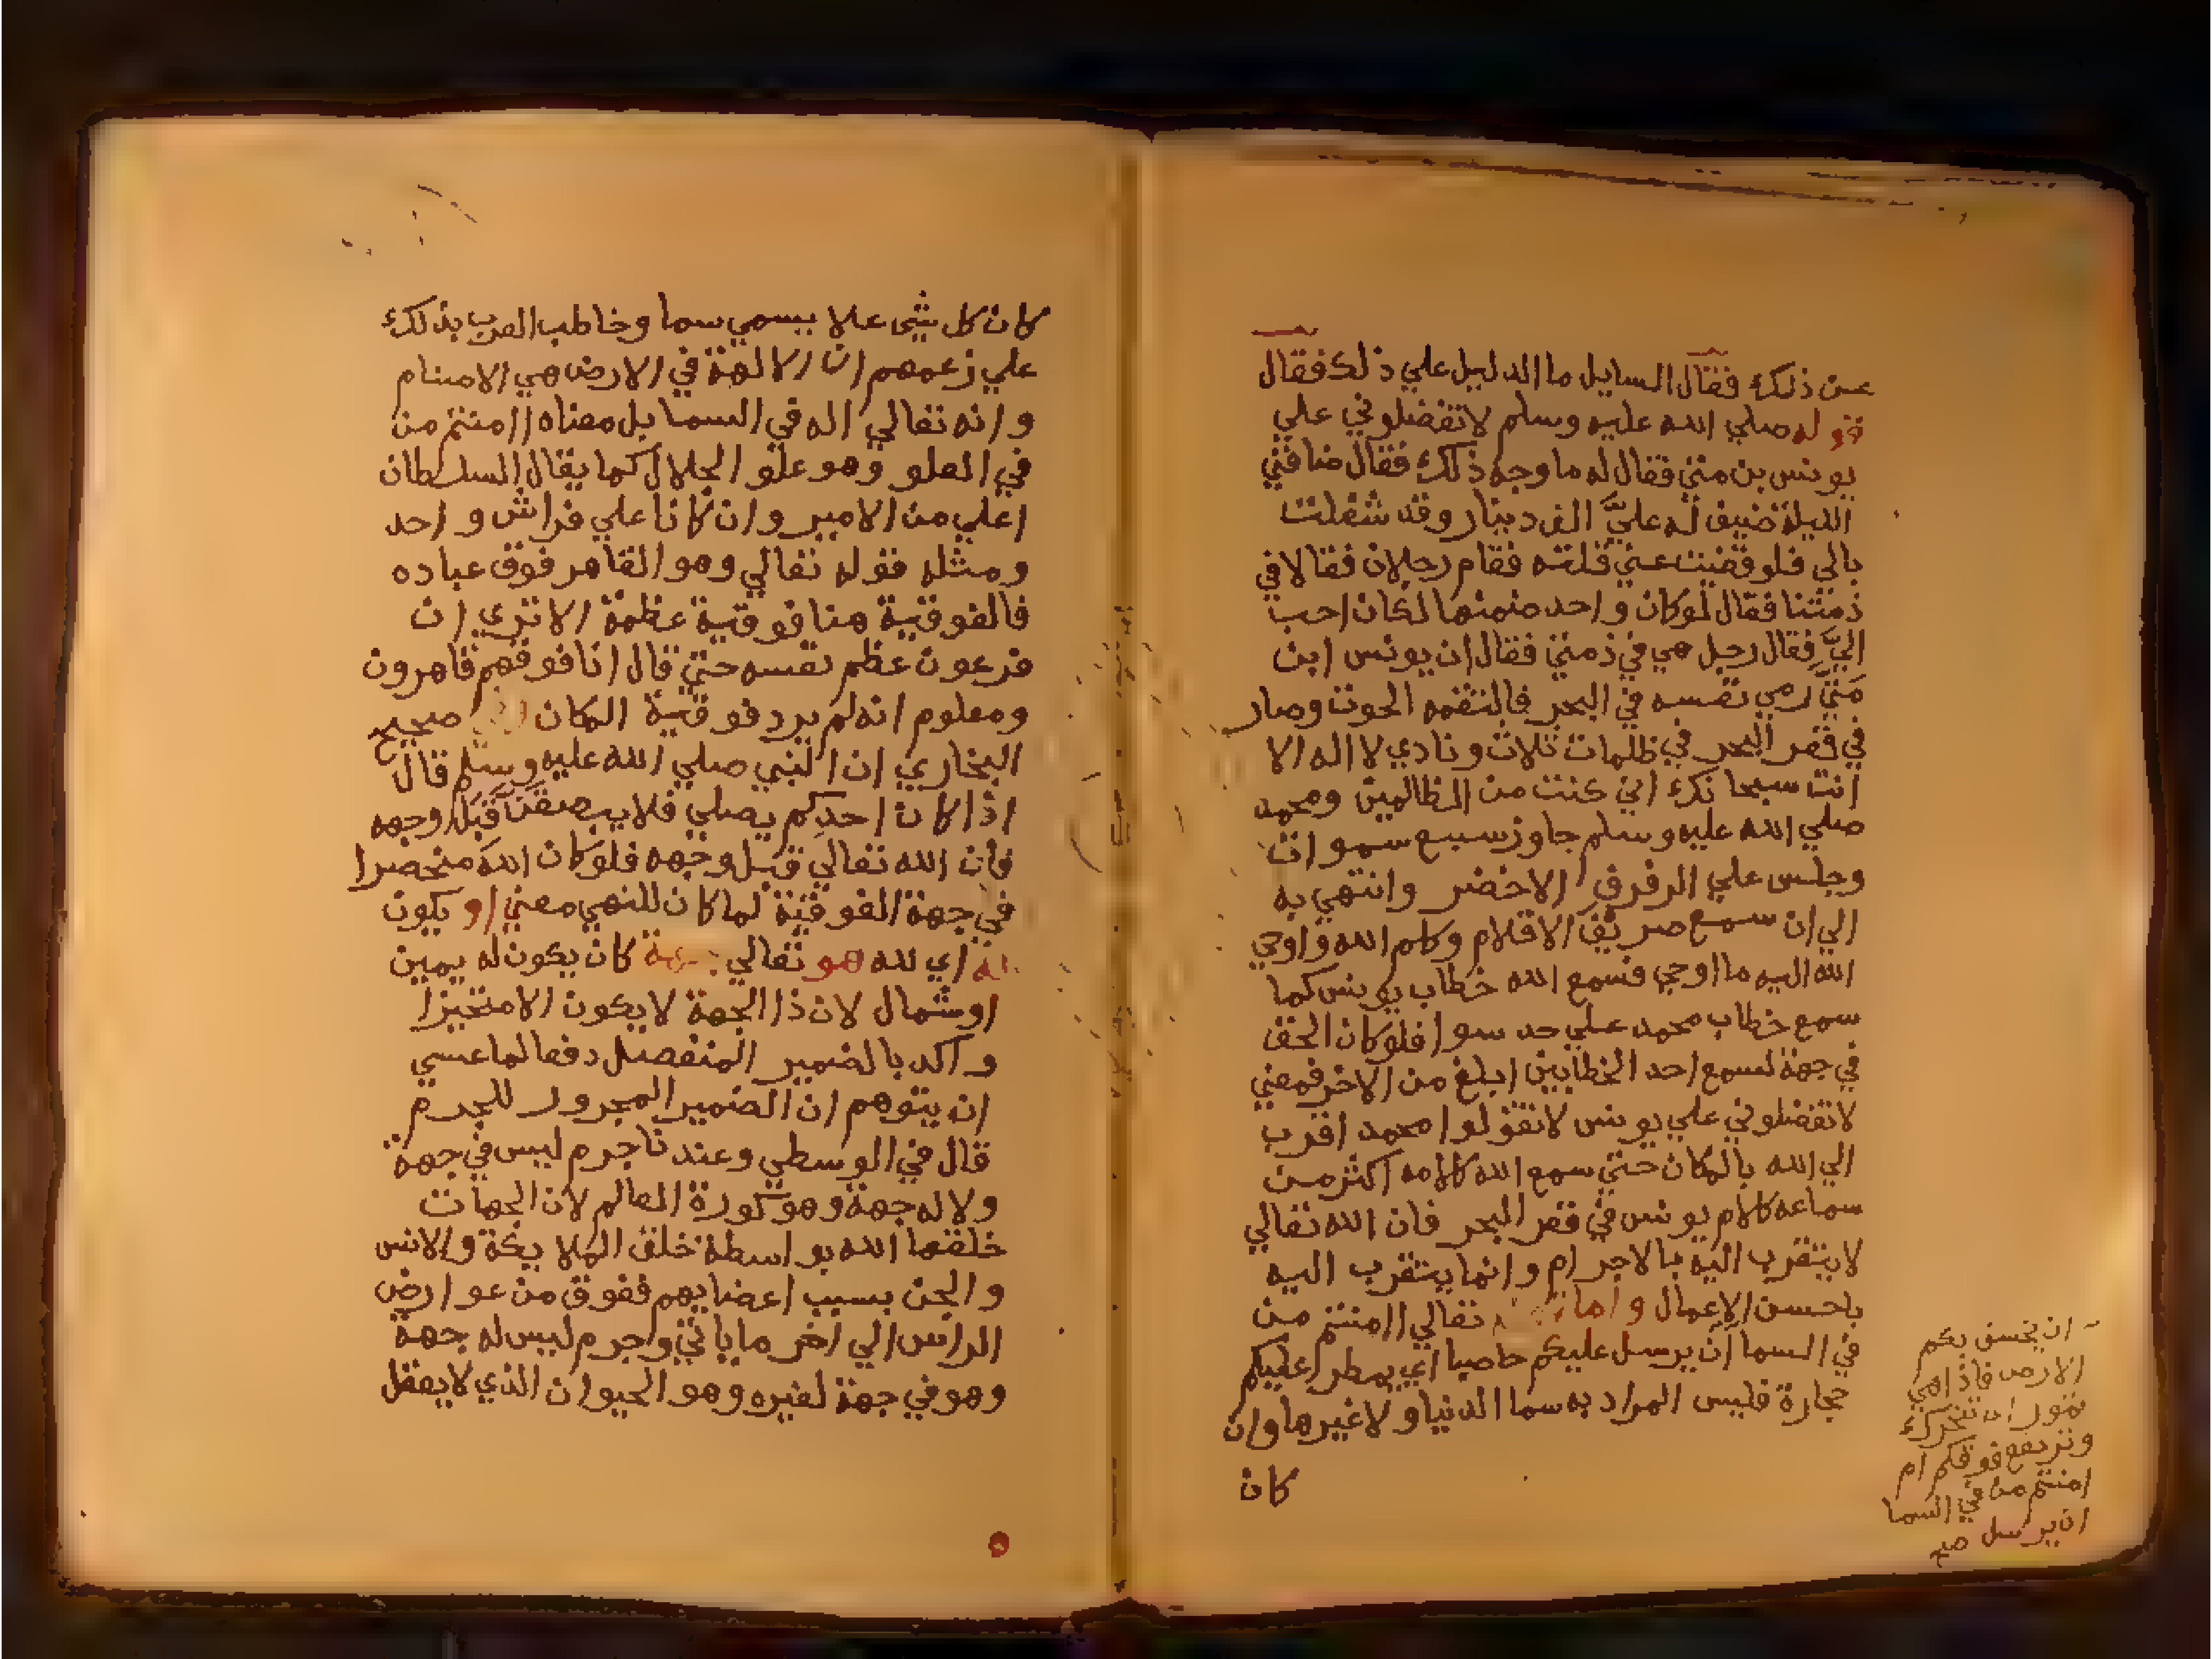 عن ذلك فقال السايل ما الدليل علي ذلك فقال
قوله صلي الله عليه وسلم لا تفضلوني علي
يونس بن متي فقال له ما وجه ذلك فقال ضافني
الليلة ضيف له عليّ الف دينار وقد شغلت
بالي فلو قضيت عني قلته فقام رجلان فقالا في
ذمتنا فقال لو كان واحد منهما لكان احب
اليّ فقال رجل هي في ذمتي فقال ان يونس ابن
متي رمي نفسه في البحر فالتقمه الحوت وصار
في قعر البحر في ظلمات ثلاث ونادي لا اله الا
انت سبحانك اني كنت من الظالمين ومحمد
صلي الله عليه وسلم جاوز سبع سموات
وجلس علي الرفرف الاخضر وانتهي به
الي ان سمع صريف الاقلام وكلم الله واوحي
الله اليه ما اوحي فسمع الله خطاب يونس كما
سمع خطاب محمد علي حد سوا فلو كان الحق
في جهة لسمع احد الخطابين ابلغ من الاخر فمعني
لا تفضلوني علي يونس لا تقولوا محمد اقرب
الي الله بالمكان حتي سمع الله كلامه اكثر من
سماعه كلام يونس في قعر البحر فان الله تعالي
لا يتقرب اليه بالاجرام وانما يتقرب اليه
باحسن الاعمال واما تعالي اامنتم من
في السما ان يرسل عليكم حاصبا اي يمطر عليكم
حجارة فليس المراد به سما الدنيا ولا غيرها وان
كان
ان يخسف بكم
الارض فاذا هي
تمور اي تتحرك
وترتفع فوقكم ام
امنتم من في السما
ان يرسل صح
كان كل شي علا يسمي سما وخاطب العرب بذلك
علي زعمهم ان الالهة في الارض هي الاصنام
وانه تعالي اله في السما بل معناه اامنتم من
في العلو وهو علو الجلال كما يقال السلطان
اعلي من الامير وان كانا علي فراش واحد
ومثله قوله تعالي وهو القاهر فوق عباده
فالفوقية هنا فوقية عظمة الا تري ان
فرعون عظم نفسه حتي قال انا فوقهم قاهرون
ومعلوم انه لم يرد فوقية المكان صحيح
البخاري ان النبي صلي الله عليه وسلم قال
اذا كان احدكم يصلي فلا يبصقن قبل وجهه
فان الله تعالي قبل وجهه فلو كان الله منحصرا
في جهة الفوقية لما كان للنهي معني او يكون
له اي لله هو تعالي جهة كان يكون له يمين
او شمال لان ذا الجهة لا يكون الا متحيزا
واكد بالضمير المنفصل دفعا لما عسي
ان يتوهم ان الضمير المجرور للجرم
قال في الوسطي وعندنا جرم ليس في جهة
ولا له جهة وهو كورة العالم لان الجهات
خلقها الله بواسطة خلق الملايكة والانس
والجن بسبب اعضايهم ففوق من عوارض
الراس الي اخر ما ياتي وجرم ليس له جهة
وهو في جهة لغيره وهو الحيوان الذي لا يعقل